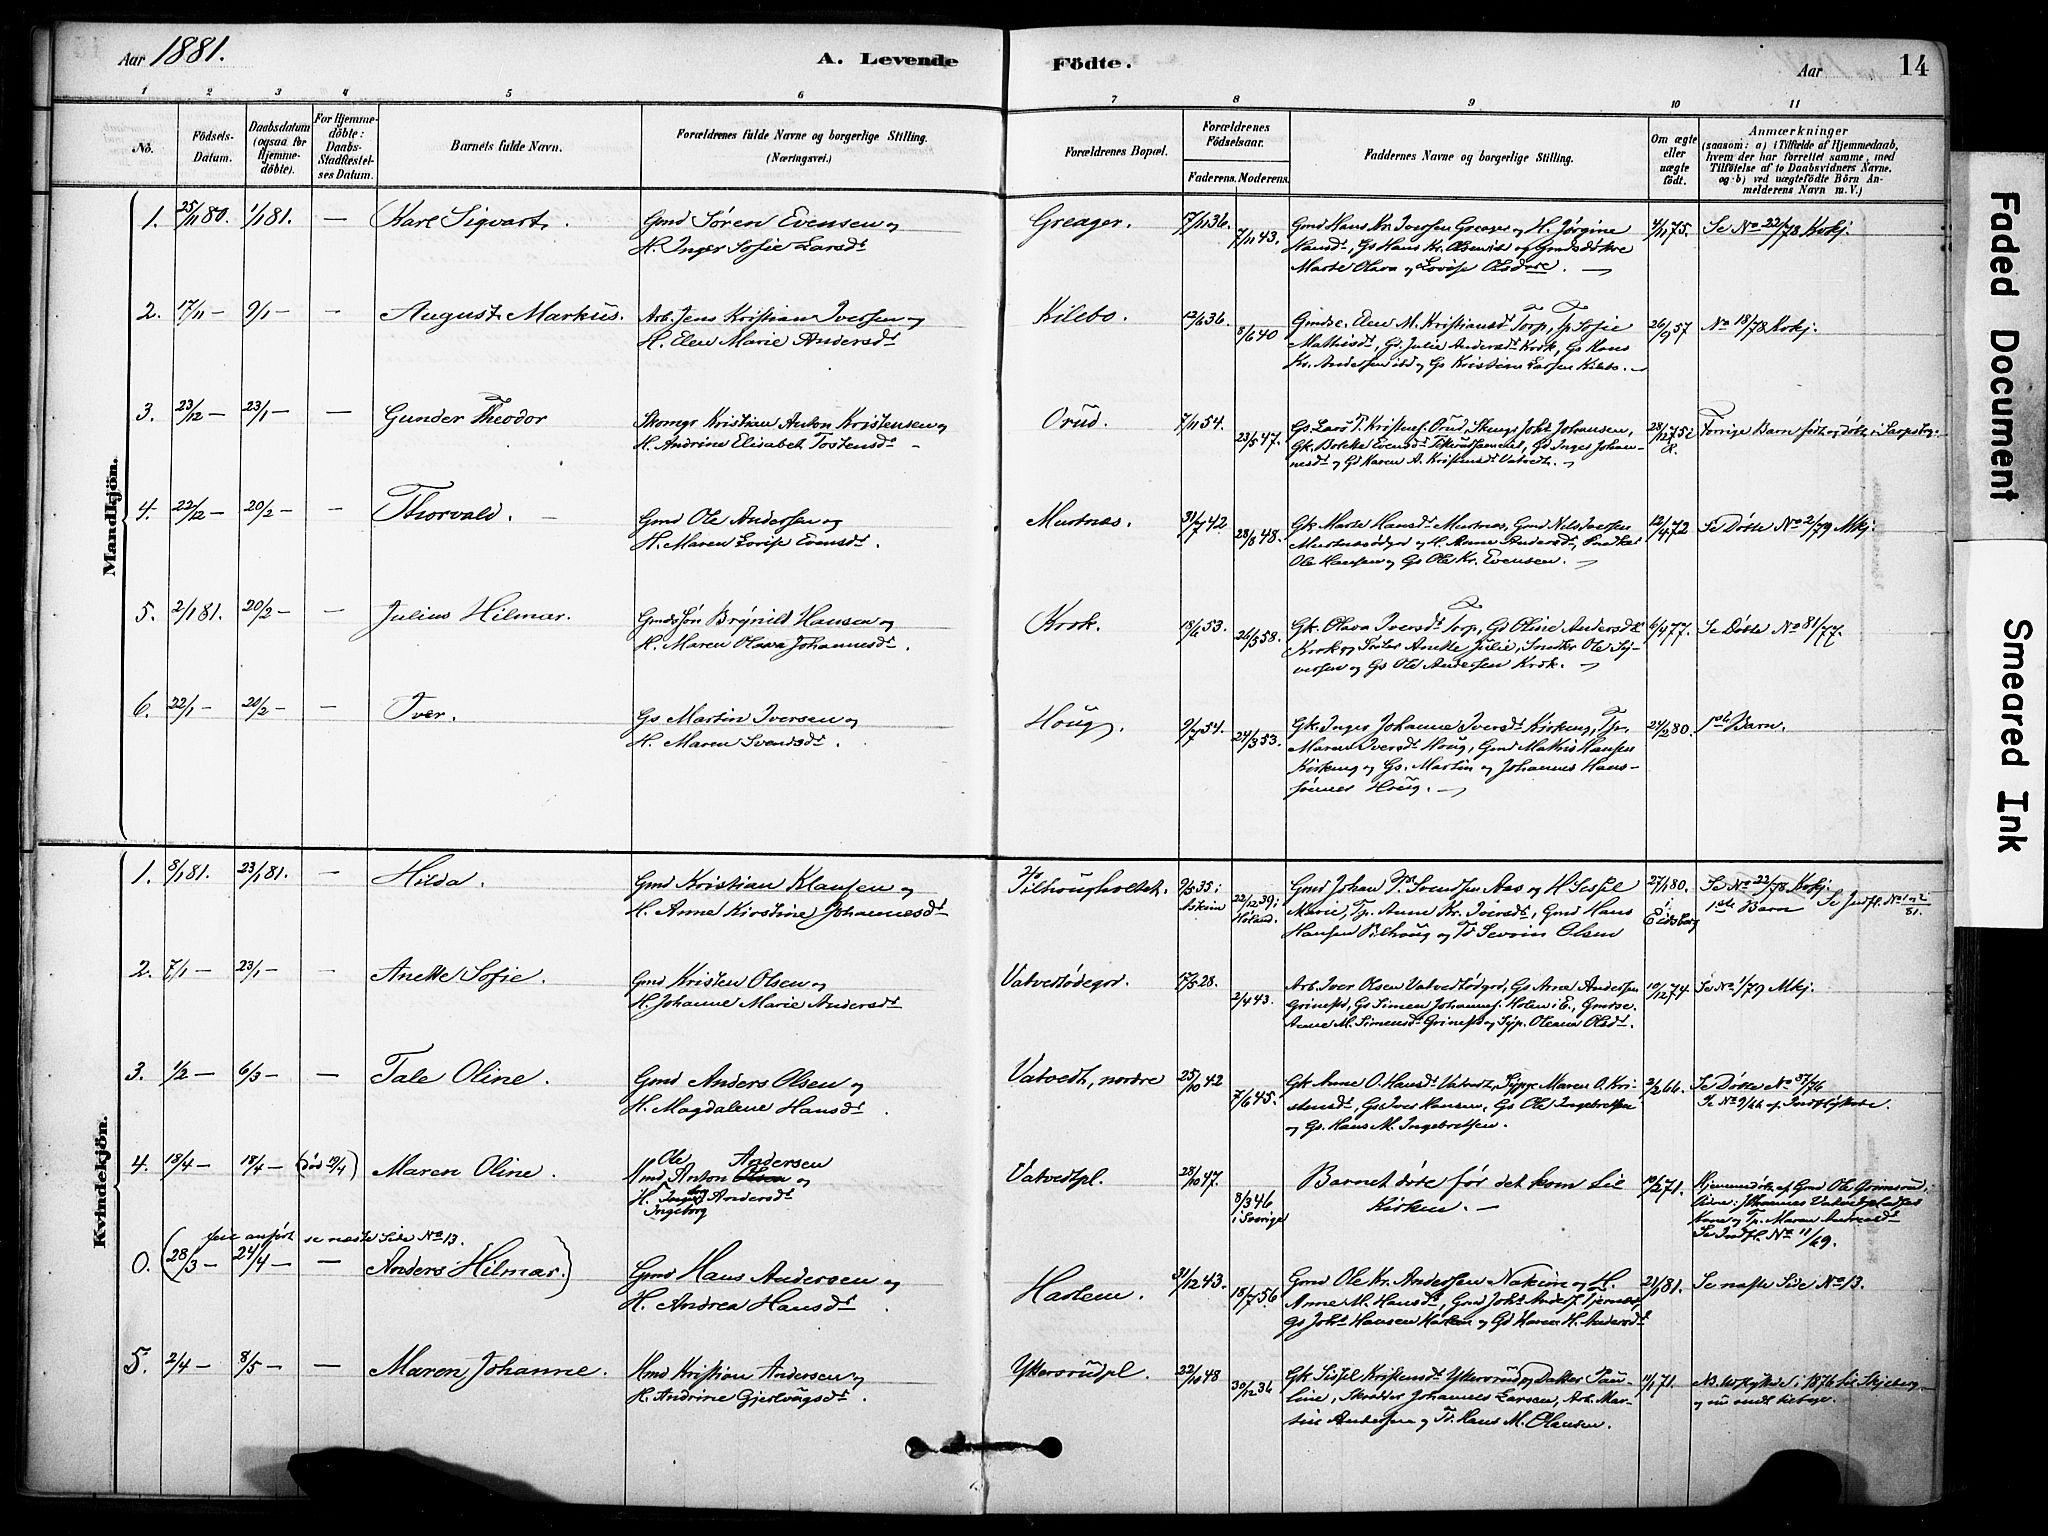 Aar 1881.
A. Levende Födte.
Aar
14
1 2 3 4 5 6 7 8 9 10 11
No.
Födsels-Datum.
Daabsdatum (ogsaa for Hjemme-döbte).
For Hjemme-döbte: Daabs-Stadfæstel-ses Datum.
Barnets fulde Navn.
Forældrenes fulde Navne og borgerlige Stilling. (Næringsvei.)
Forældrenes Bopæl.
Forældrenes Födselsaar.
Faderens. Moderens.
Faddernes Navne og borgerlige Stilling.
Om ægte eller uægte födt.
Anmærkninger (saasom: a) i Tilfælde af Hjemmedaab, hvem der har forrettet samme, med Tilföielse af to Daabsvidners Navne, og b) ved uægtefödte Börn Anmelderens Navn m. V.)
Mandkjön.
1. 25/11 80. 1/1 81. — Karl Sigvart. Gmd Søren Evensen og
H. Inger Sofie Larsdt
Greager. 17/11 36. 7/11 43. Gmd Hans Kr. Iversen Greager og H. Jørgine
Marte Olava og Lovise Olsdøre. —
4/11 75. Se No 22/78 Kokj.
2. 17/11 — 9/1 — — August Markus. Arb. Jens Kristian Iversen og
H. Elen Marie Andersdt
Kilebo. 12/6 36. 8/6 40 Gmdse. Elen M. Kristiansdt Torp, Tp Sofie
Mathisdt, Gd. Julie Andersdt Krok, Gs Hans
Kr. Andersen ibd og Gs Kristian Larsen Kilebo. —
26/9 57 No 18/78 Kokj.
3. 23/12 — 23/1 — — Gunder Theodor Skomgr Kristian Anton Kristensen og
H. Andrine Elisabet Tostensdt —
Orud. 7/11 54. 23/5 47. Gs. Lars T. Kristens. Orud, Skmgr Joht Johansen,
nesdt og Gd Karen A. Kristensdt Vatvedt. —
28/12 75 i R. Forrige Barn født og døbt i Sarpsbg.
4. 22/12 — 20/2 — — Thorvald. — Gmd Ole Andersen og
H. Maren Lovise Evensdt.
Murtnæs. 31/7 42. 28/8 48. Gk. Marte Hansdt Murtnæs, Gmd Nils Iversen
Murtnæsødgr og H. Anne Andersdt, Snedker
Ole Hansen og Gs Ole Kr. Evensen. —
12/4 72 Se Døbte No 2/79 Mkj.
5. 2/1 81. 20/2 — — Julius Hilmar. Gmdssøn Brynild Hansen og
H. Maren Olava Johannesdt.
Krok. 18/6 53. 26/3 58. Gk. Olava Iversdt Torp, Gd Oline Andersdt
Krok og Søster Anette Julie, Snedkr Ole Si-
versen og Gs Ole Andersen Krok. —
6/4 77. Se Døbte No 81/77.
6. 22/1 — 20/2 — — Iver. Gs Martin Iversen og
H. Maren Svendsdt.
Houg. 9/7 54. 24/3 53. Gk. Inger Johanne Iversdt Kirkeng, Tp.
Maren Iversdt Houg, Gmd Mathis Hansen
Kirkeng og Gs. Martin og Johannes Hans-
sønner Houg. —
24/2 80. 1ste Barn.
Kvindekjön.
1. 8/1 81. 23/1 81. — Hilda. Gmd Kristian Klausen og
H. Anne Kirstine Johannesdt
Pilhougholtet. 9/5 35 i Askim 22/12 39 i Høland. Gmd Johan P. Svendsen Aas og H Sissil
Marie, Tp. Anne Kr. Iversdt, Gmd Hans
Hansen Pilhoug og Ts Sevrin Olsen
27/1 80. i Eidsberg Se No 22/78 Kokj.
1ste Barn Se Indfl. No 1 og 2/81.
2. 7/1 — 23/1 — — Anette Sofie. Gmd Kristen Olsen og
H. Johanne Marie Andersdt
Vatvedtødegrd. 17/5 28. 2/4 43. Arb. Iver Olsen Vatvedtødgrd, Gs Arne Andersen
Grimsrd, Gs Simen Johannes. Holen i E., Gmdse.
Anne M. Simensdt Grimsrd og Syp. Oleana Olsdt.
10/12 74 Se No 1/79 Mkj.
3. 1/2 — 6/3 — — Tale Oline. Gmd Anders Olsen og
H. Magdalene Hansdt.
Vatvedt, nordre 25/10 42 7/6 45. Gk Anne O. Hansdt Vatvedt, Sypge Maren O. Kri-
stensdt, Gs Iver Hansen, Gs Ole Ingebretsen
og Gs. Hans M. Ingebretsen.
2/2 66. Se Døbte No 37/76
Se No 9/66 af Indflyttede.
4. 18/4 — 18/4 — (død 19/4) Maren Oline. Hmd Ole Anton Olsen Andersen og
H. Ingeborg Andersdt
Ingeborg
Vatvedtpl. 28/10 47. 8/3 46 i Sverige Barnet døde før det kom til
Kirken. —
10/2 71. Hjemmedøbt af Gmd Ole Grimsrud.
Vidne: Johannes Vatvedtpladsens
Kone og Tp. Maren Andreasdt
Se Indfl. No 11/69.
feil anført se næste Side No 13.
0. (28/3 — 24/4 — — Anders Hilmar.) Gmd Hans Andersen og
H. Andrea Hansdt.
Haslem. 31/12 43. 18/7 56 Gmd Ole Kr. Andersen Nakim og H.
Anne M. Hansdt, Gmd Joht Anders. Tjernæs,
Gs Joht Hansen Haslem og Gd Karen H. Andersdt
21/1 81. Se næste Side No 13.
5. 2/4 — 8/5 — — Maren Johanne. Hmd Kristian Andersen og
H. Andrine Gjerløugsdt.
Ytterrudpl. 22/10 48 30/12 36 Gk Sissel Kristensdt Ytterrud og Datter Pau-
line, Skrædder Johannes Larsen, Arb. Mar-
tin Andersen og Ts. Hans M. Olausen.
11/1 71. NB. udflyttede i 1876 til Skjeberg
og nu vendt tilbage.
Faded Document
Smeared Ink